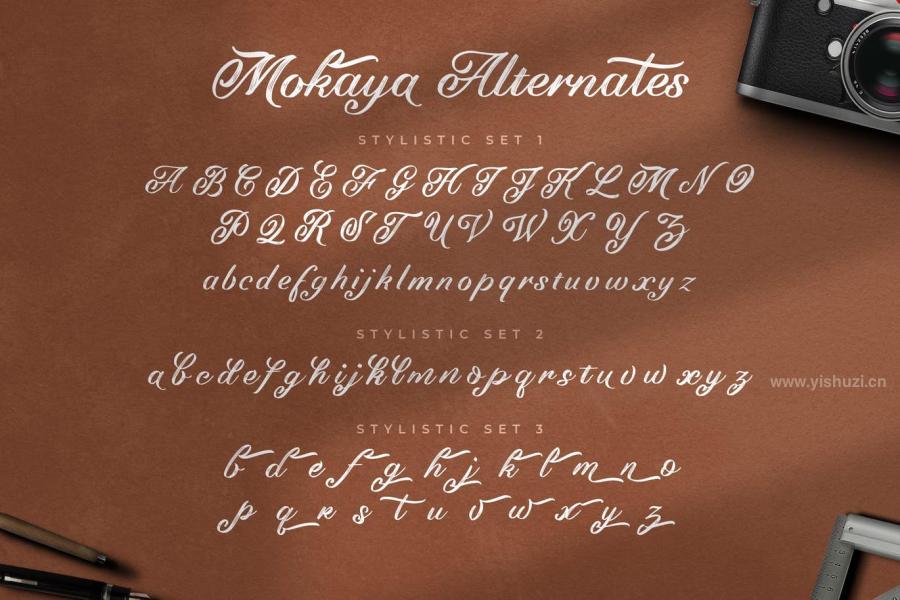 Mokaya Alternates
STYLISTIC SET 1
A B C D E F G H I J K L M N O
P Q R S T U V W X Y Z
a b c d e f g h i j k l m n o p q r s t u v w x y z
STYLISTIC SET 2
a b c d e f g h i j k l m n o p q r s t u v w x y z
www.yishuzi.cn
STYLISTIC SET 3
b d e f g h j k l m n o
p q r s t u v w x y z